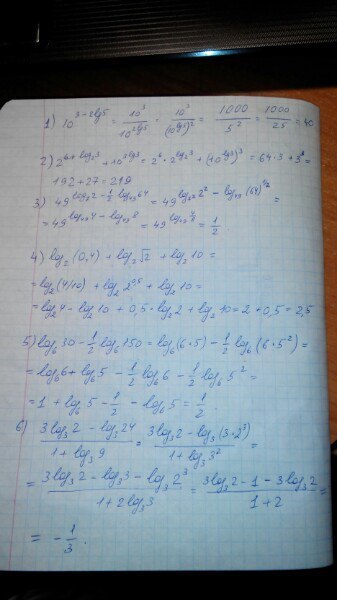 1) 10^(3-2lg5) = 10^3/10^(2lg5) = 10^3/(10^(lg5))^2 = 1000/5^2 = 1000/25 = 40
2) 2^(6+log_2 3) + 10^(3lg3) = 2^6 · 2^(log_2 3) + (10^(lg3))^3 = 64·3 + 3^3 =
192+27=219
3) 49^(log_49 2 - 1/2 log_49 64) = 49^(log_49 2^2 - log_49 (64)^(1/2)) =
= 49^(log_49 4 - log_49 8) = 49^(log_49 4/8) = 1/2.
4) log_2 (0,4) + log_2 √2 + log_2 10 =
= log_2 (4/10) + log_2 2^(0,5) + log_2 10 =
= log_2 4 - log_2 10 + 0,5·log_2 2 + log_2 10 = 2+0,5 = 2,5
5) log_6 30 - 1/2 log_6 150 = log_6 (6·5) - 1/2 log_6 (6·5^2) =
= log_6 6 + log_6 5 - 1/2 log_6 6 - 1/2 log_6 5^2 =
= 1 + log_6 5 - 1/2 - log_6 5 = 1/2
6) (3log_3 2 - log_3 24)/(1 + log_3 9) = (3log_3 2 - log_3 (3·2^3))/(1 + log_3 3^2) =
= (3log_3 2 - log_3 3 - log_3 2^3)/(1 + 2log_3 3) = (3log_3 2 - 1 - 3log_3 2)/(1+2) =
= -1/3.